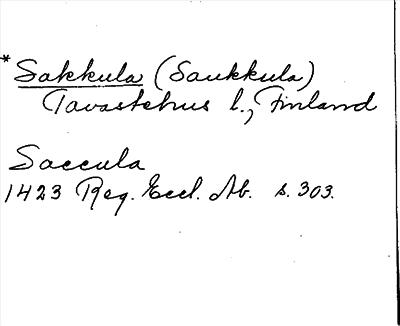 * Sakkula (Saukkula)
Tavastehus l., Finland
Saccula
1423 Reg. Eccl. Ab. s. 303.